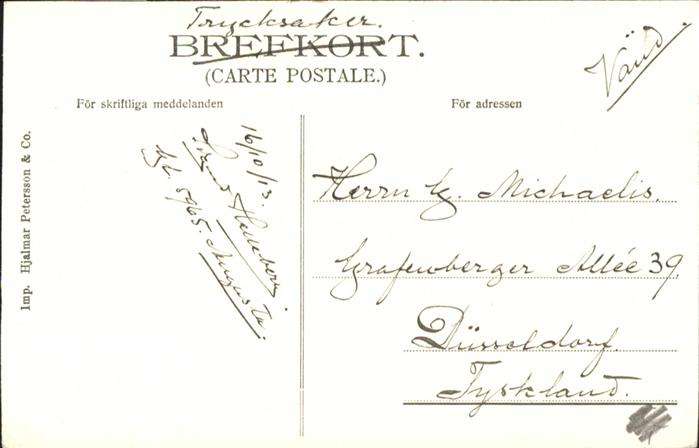 Trycksaker.
BREFKORT.
(CARTE POSTALE.)
Vänd.
För skriftliga meddelanden
För adressen
Imp. Hjalmar Petersson & Co.
16/10/13.
5965. Augusta.
Herrn G. Michaelis.
Grafenberger Allée 39
Düsseldorf.
Tyskland.